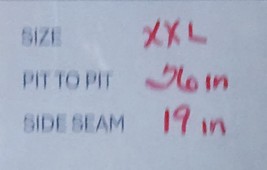 SIZE XXL
PIT TO PIT 26 in
SIDE SEAM 19 in